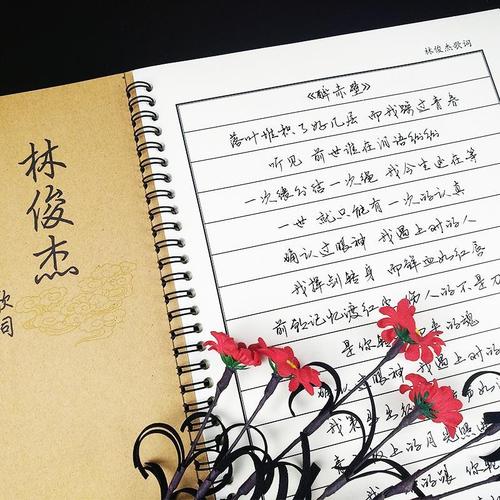 林俊杰
歌词
林俊杰歌词
《醉赤壁》
落叶堆积了好几层 而我踩过青春
听见 前世谁在泪语纷纷
一次缘份结一次绳 我今生还在等
一世 就只能有一次的认真
确认过眼神 我遇上对的人
我挥剑转身 而鲜血如红唇
前朝记忆渡红 伤人的不是刀
是你转 来的魂
确 过眼神 我遇上对的
我策 出
上的月光照
我 的跟 你轮